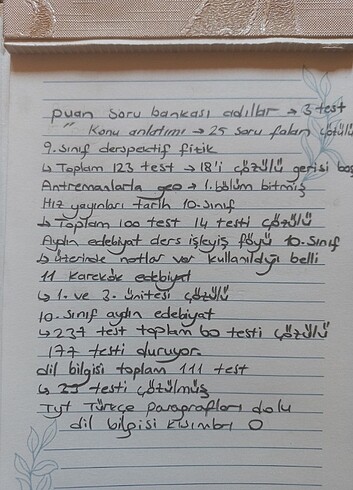 puan soru bankası acıllar → 3 test
" Konu anlatımı → 25 soru falan çözülü
9. sınıf derspektif fizik
↳ Toplam 123 test → 18'i çözülü gerisi boş
Antremanlarla geo → 1. bölüm bitmiş
Hız yayınları tarih 10. sınıf
↳ Toplam 100 test 14 testi çözülü
Aydın edebiyat ders işleyiş föyü 10. sınıf
↳ üterinde notlar var kullanıldığı belli
11 Karekök edebiyat
↳ 1. ve 3. ünitesi çözülü
10. sınıf aydın edebiyat
↳ 237 test toplam 60 testi çözülü
177 testi duruyor.
dil bilgisi toplam 111 test
↳ 25 testi çözülmüş
Tyt Türkçe paragrafları dolu
dil bilgisi kısımları 0